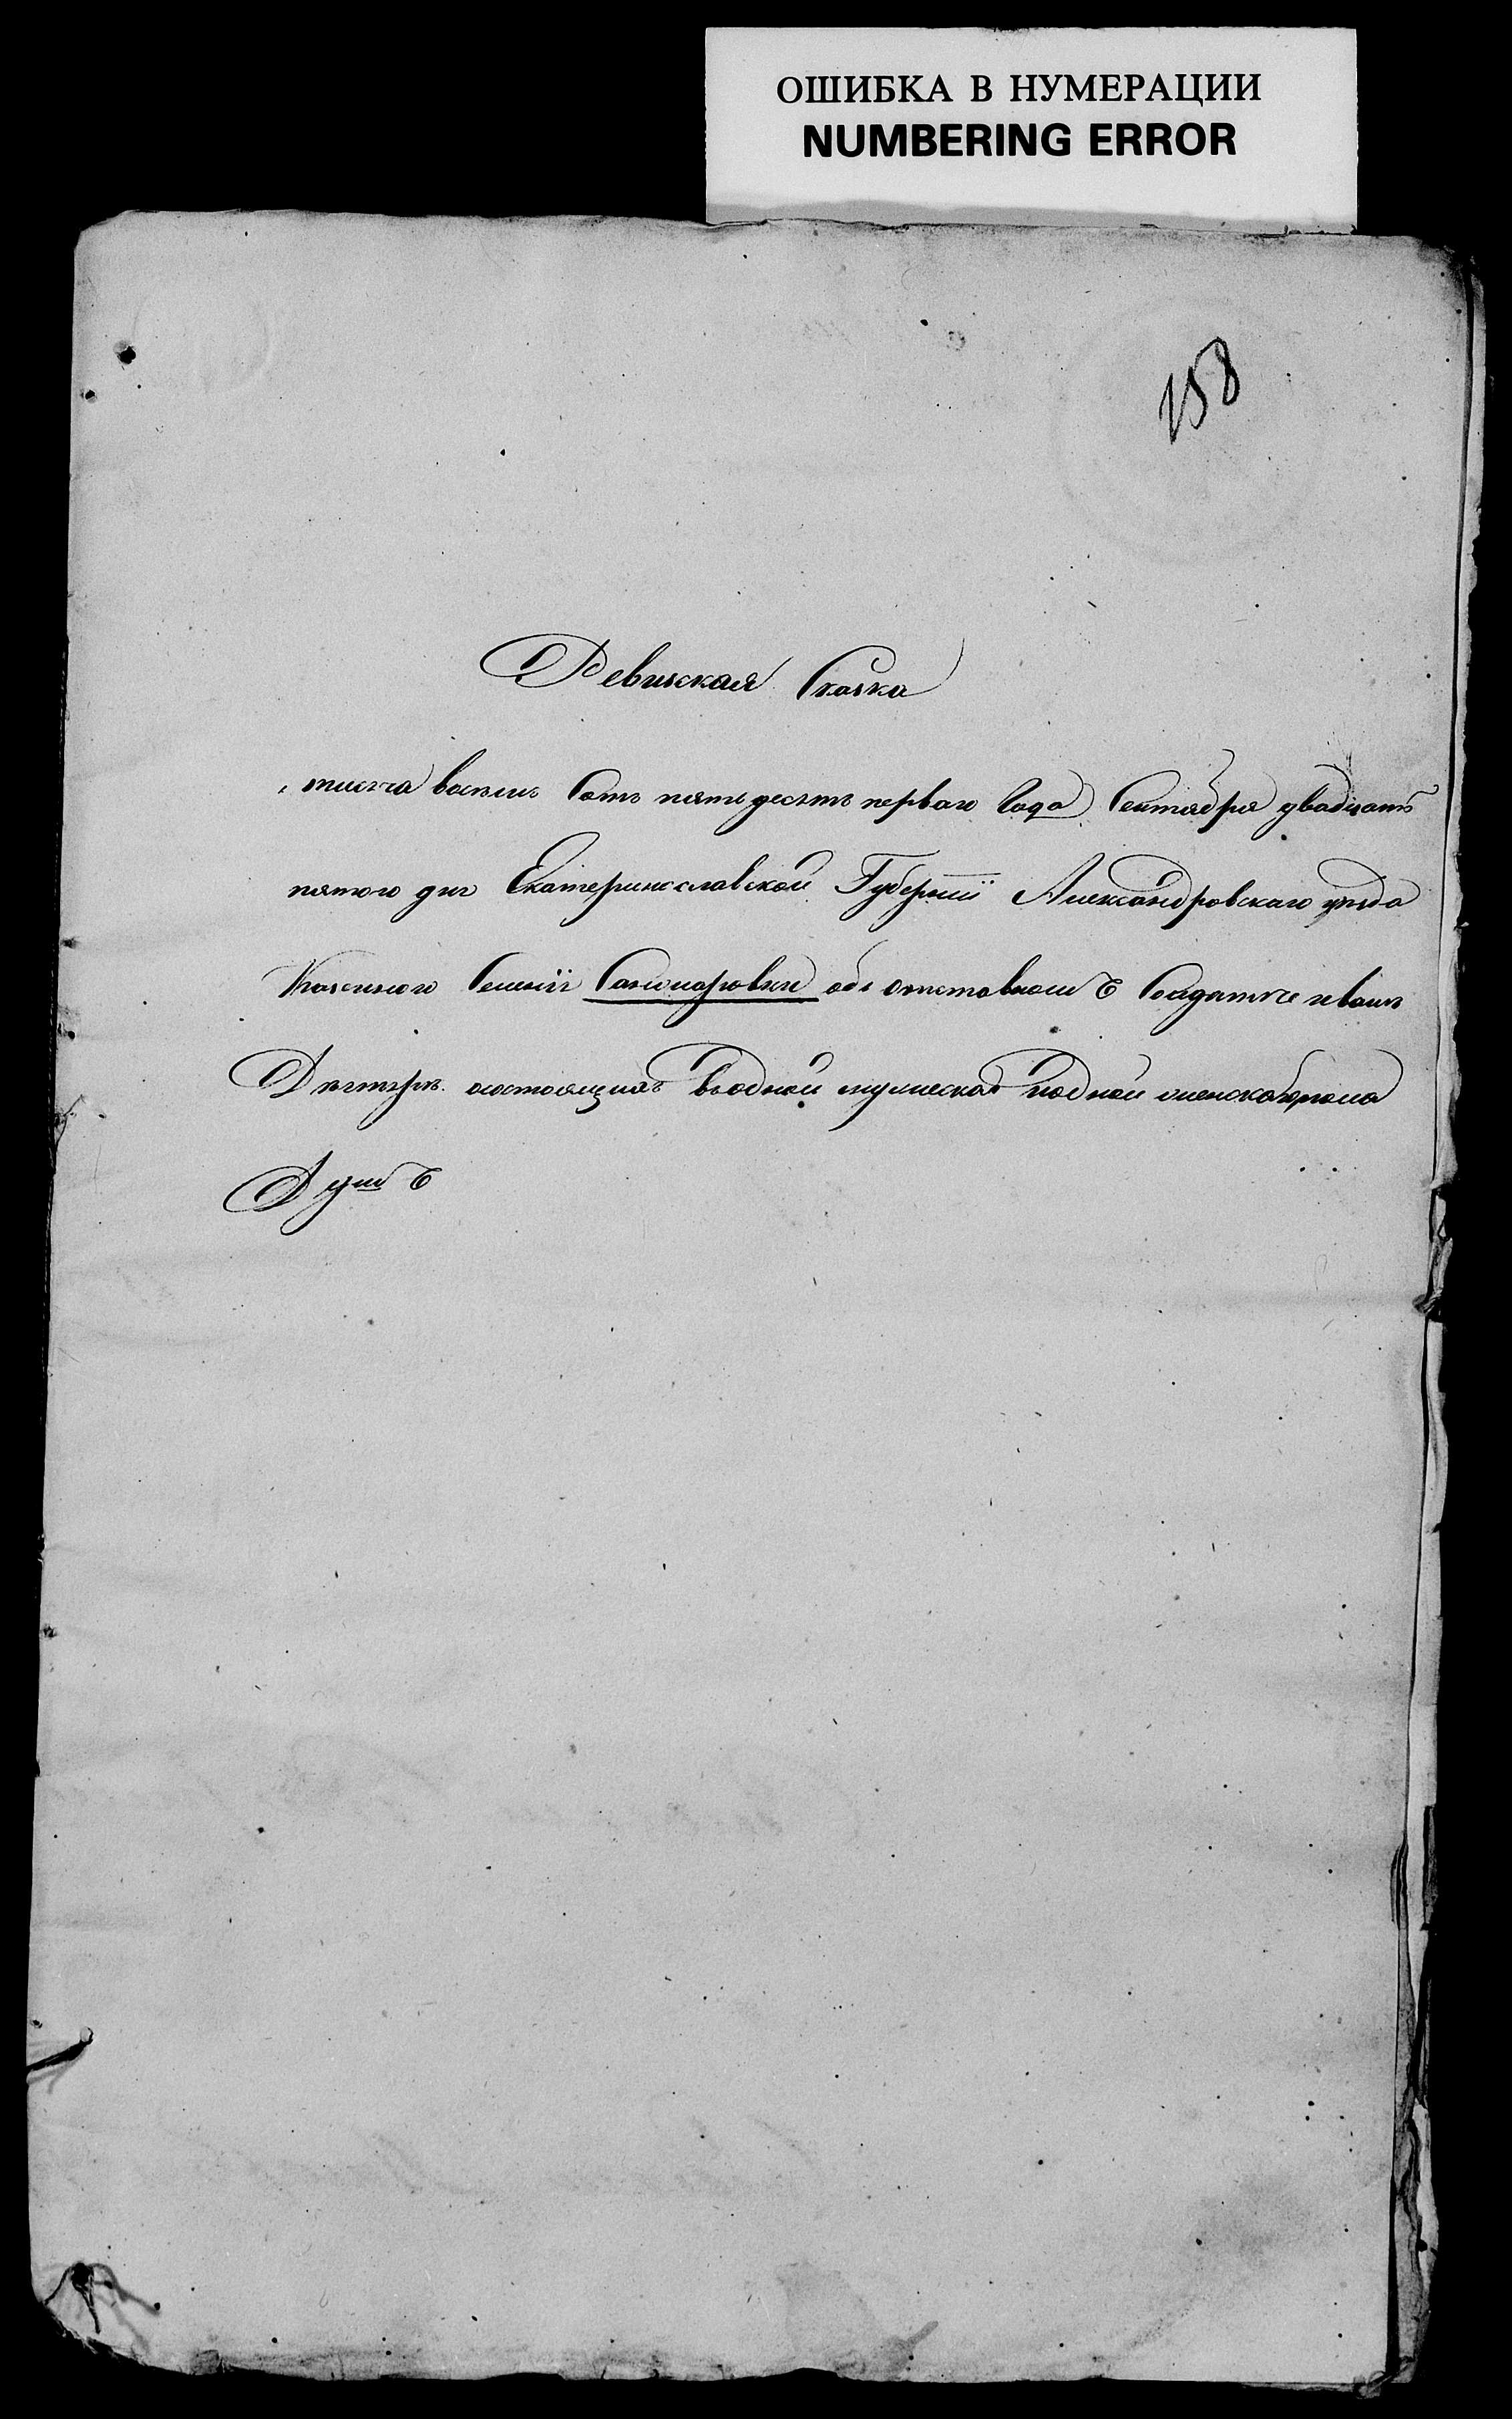 ОШИБКА В НУМЕРАЦИИ
NUMBERING ERROR
158
Ревиская Сказка
тисеча восемь Сотъ пятьдесятъ перваго Года Сентября двадцать
пятого дня Екатеринославской Губернии Александровскаго уезда
Казенного Селения объ отставномъ Солдате
состоящихъ водной мужеска иодной женска пола
Душъ